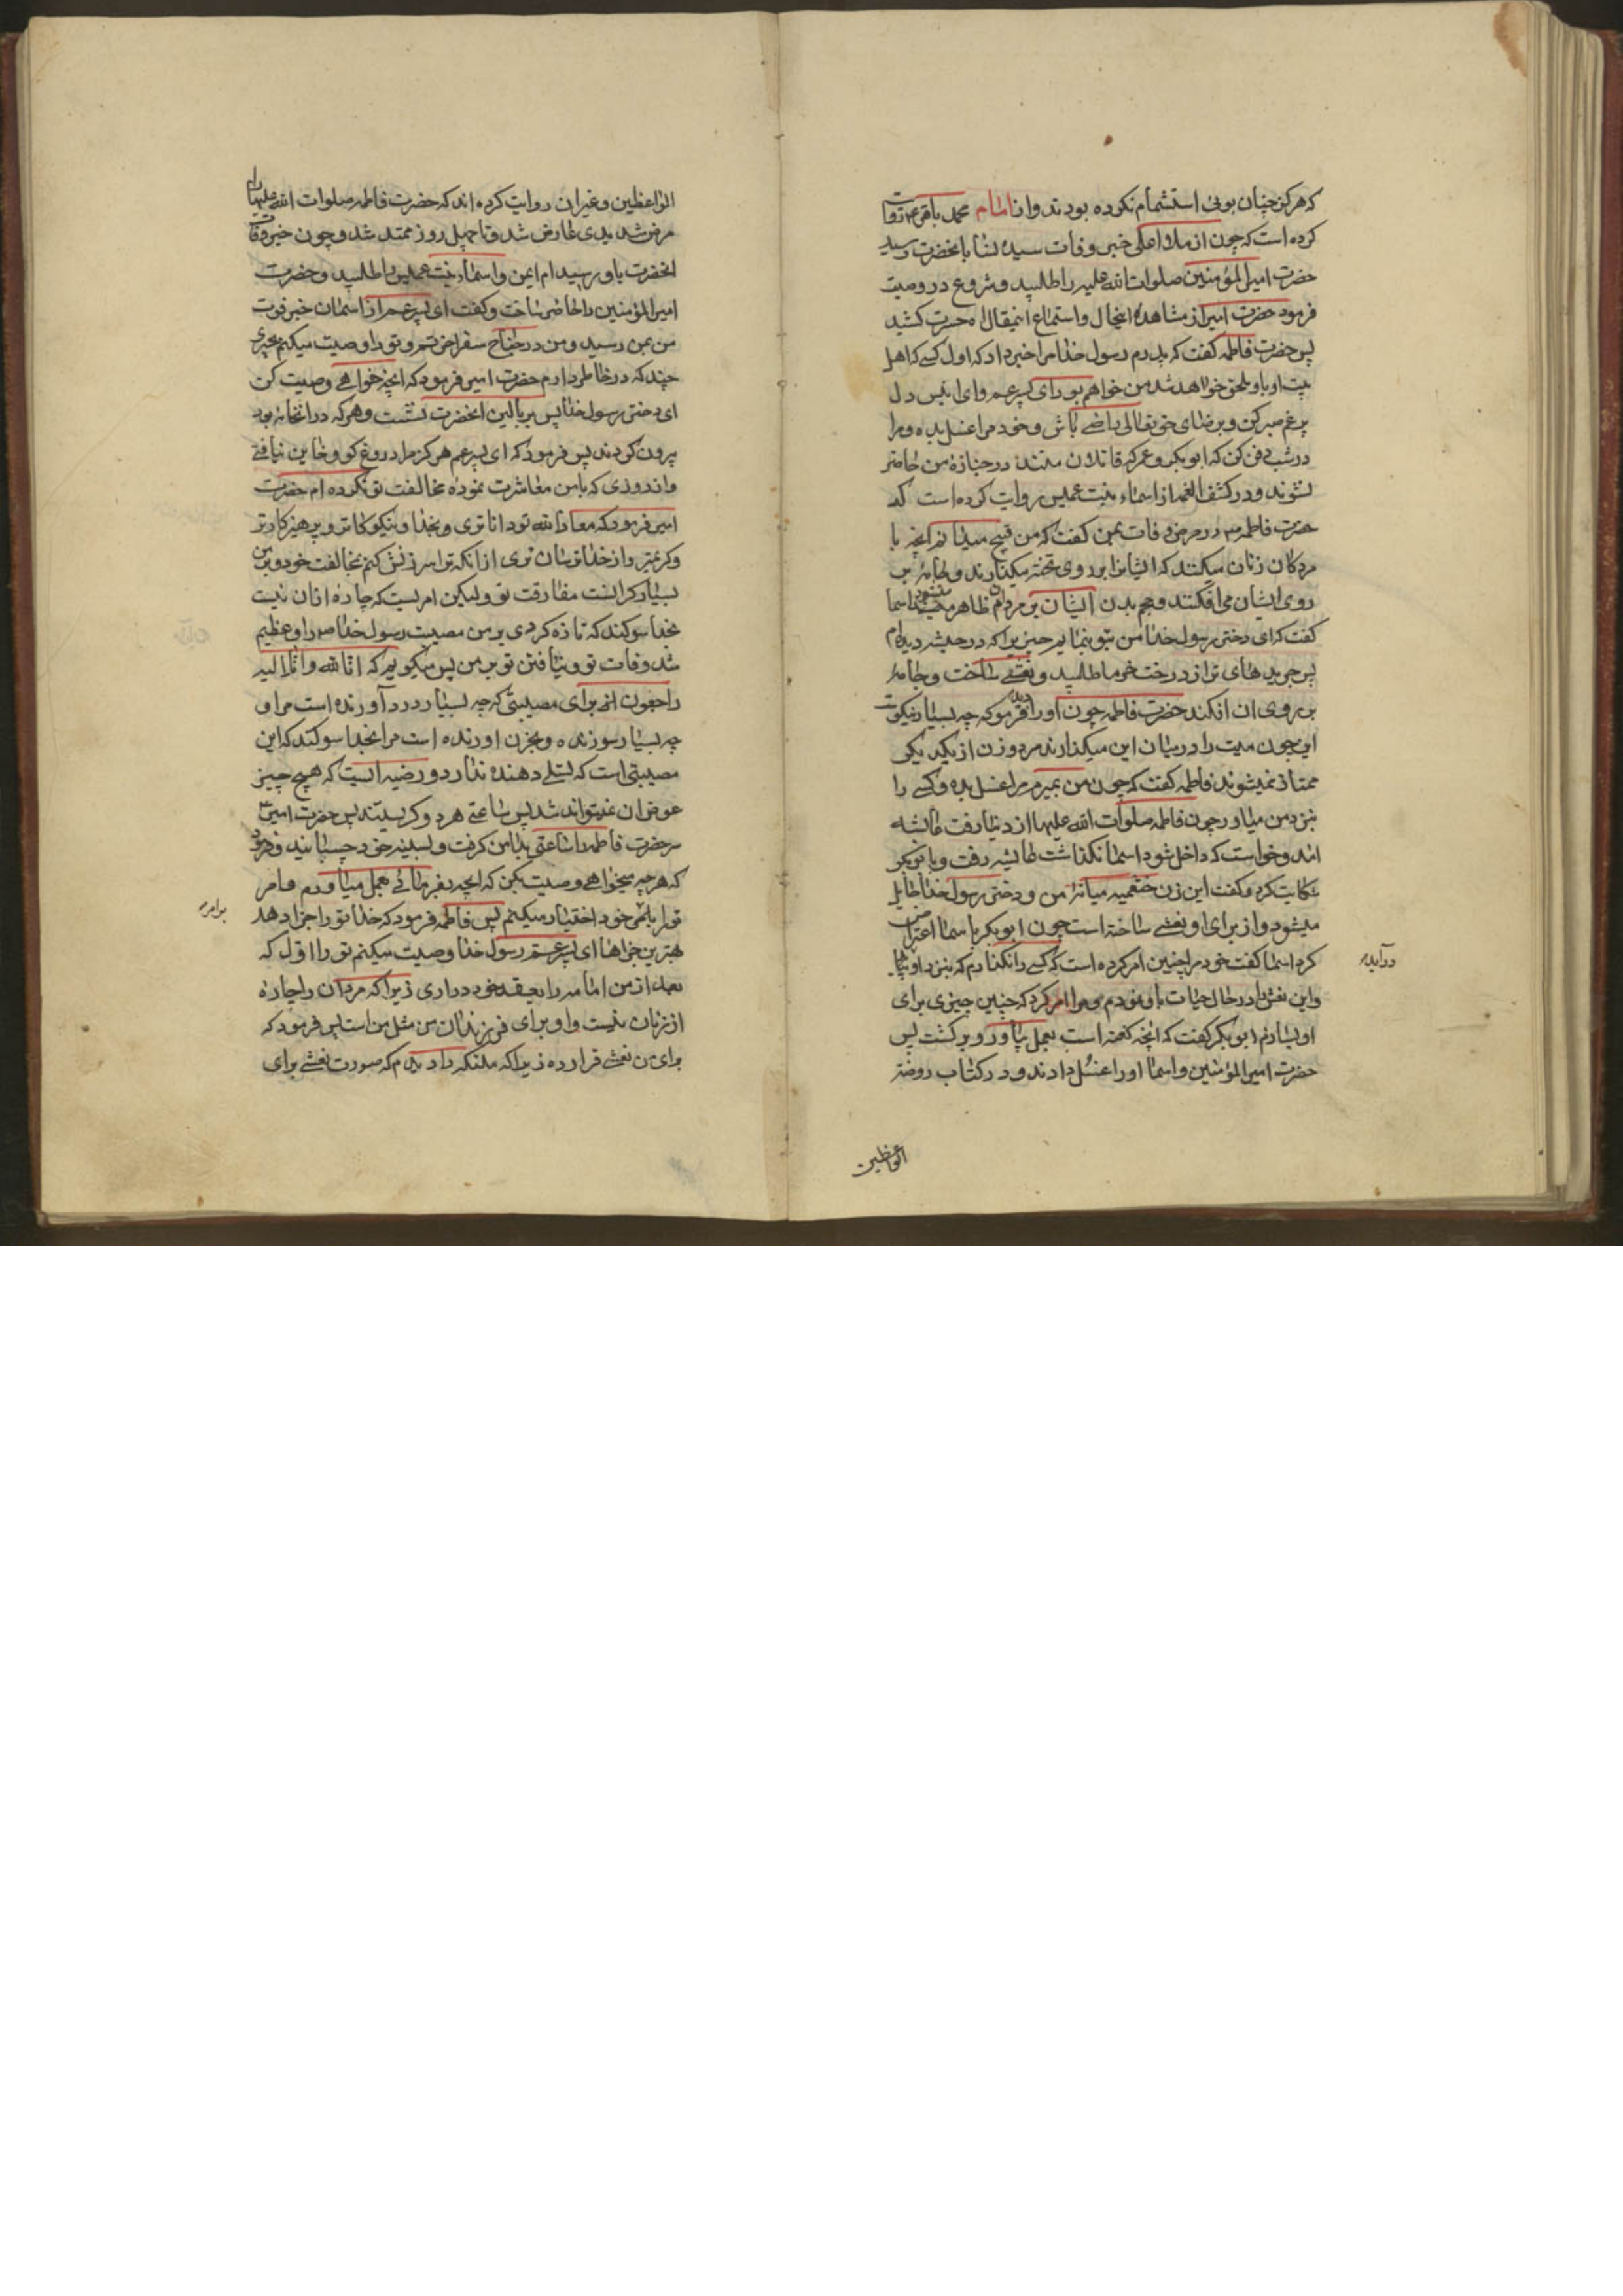 که هرکز چنان بوئی استشمام نکرده بودند و از امام محمد باقر ع روایت
کرده است که چون از ملاء اعلی خبر وفات سیده نسا بانحضرت رسید
حضرت امیر المؤمنین صلوات الله علیه را طلبید و شروع در وصیت
فرمود حضرت امیر از مشاهدهٔ اینحال و استماع اینمقال اه حسرت کشید
پس حضرت فاطمه کفت که پدرم رسول خدا مرا خبر داد که اول کسے که اهل
بیت او باو ملحق خواهد شد من خواهم بود ای پسر عم و ای انیس دل
پر غم صبر کن و برضای حق تعالی راضے باش و خود مرا غسل بده و مرا
در شب دفن کن که ابو بکر و عمر که قاتلان منند در جنازهٔ من حاضر
نشوند و در کشف الغمه از اسماء بنت عمیس روایت کرده است که
حضرت فاطمه در مرض وفات بمن کفت که من قبیح میدانم انچه با
مردکان زنان میکنند که ایشانرا بر روی تخته میکذارند و جامهٔ بر
روی ایشان می افکنند و حجم بدن ایشان بر مردان ظاهر میشود اسما
کفت که ای دختر رسول خدا من بتو بنمایم چیزیرا که در حبشه دیده ام
پس جریدهای تر از درخت خرما طلبید و نعشے ساخت و جامهٔ
بر روی ان افکند حضرت فاطمه چون او را دید فرمود که چه بسیار نیکوست
این چون میت را در میان این میکذارند مرد و زن از یکدیکر
ممتاز نمیشوند فاطمه کفت که چون من بمیرم مرا غسل بده و کسے را
بنزد من میاور چون فاطمه صلوات الله علیها از دنیا رفت عایشه
امد و خواست که داخل شود اسما نکذاشت عایشه رفت و با بوبکر
شکایت کرد و کفت این زن خثعمیه میانهٔ من و دختر رسول خدا حایل
میشود و از برای او نعشے ساخته است چون ابو بکر با سما اعتراض
کرد اسما کفت خود مرا چنین امر کرده است که کسے را نکذارم که بنزد او بیاید
درآید
و این نعش را در حال حیات باو نمودم و مرا امر کرد که چنین چیزی برای
او بسازم ابو بکر کفت که انچه کفته است بعمل بیاور و برکشت پس
حضرت امیر المؤمنین و اسما او را غسل دادند و در کتاب روضة
الواعظین
الواعظین و غیر ان روایت کرده اند که حضرت فاطمه صلوات الله علیها را
مرض شدیدی عارض شد و تا چهل روز ممتد شد و چون خبر وفات
انحضرت باو رسید ام ایمن و اسماء بنت عمیس را طلبید و حضرت
امیر المؤمنین را حاضر ساخت و کفت ای پسر عم از اسمان خبر فوت
من بمن رسید و من در جناح سفر اخرتم و تو را وصیت میکنم بچیزی
چند که در خاطر دارم حضرت امیر فرمود که انچه خواهے وصیت کن
ای دختر رسول خدا پس بر بالین انحضرت نشست و هر که در انخانه بود
بیرون کردند پس فرمود که ای پسر عم هرکز مرا دروغ کو و خاین نیافتے
و از روزی که با من معاشرت نمودهٔ مخالفت تو نکرده ام حضرت
امیر فرمود که معاذ الله تو داناتری و بخدا و نیکوکارتر و پرهیزکارتر
و کریمتر و از خدا ترسان تری از انکه ترا سرزنش کنم بمخالفت خود و بر من
بسیار کرانست مفارقت تو و لیکن امریست که چاره از ان نیست
بخدا سوکند که تازه کردی بر من مصیبت رسول خدا ص را و عظیم
شد وفات تو و نیافتن تو بر من پس میکویم که انا لله و انا الیه
راجعون از برای مصیبتی که چه بسیار درد آورنده است مرا و
چه بسیار سوزنده و بحزن اورنده است مرا بخدا سوکند که این
مصیبتی است که تسلے دهنده ندارد و رضیه ایست که هیچ چیز
عوض ان نمیتواند شد پس ساعتے هر دو کریستند پس حضرت امیر
سر حضرت فاطمه را ساعتی بدامن کرفت و بسینه خود چسپانید و فرمود
که هر چه میخواهے وصیت بکن که انچه بفرمائے بعمل میاورم و امر
تو را بر امر خود اختیار میکنم پس فاطمه فرمود که خدا تو را جزا دهد
برامر
بهترین جزاها ای پسر عم رسول خدا وصیت میکنم تو را اول که
بعد از من امامه را بعقد خود دراری زیرا که مردان را چارهٔ
از زنان نیست و او برای فرزندان من مثل من است پس فرمود که
برای من نعشے قرار ده زیرا که ملئکه را دیدم که صورت نعشے برای